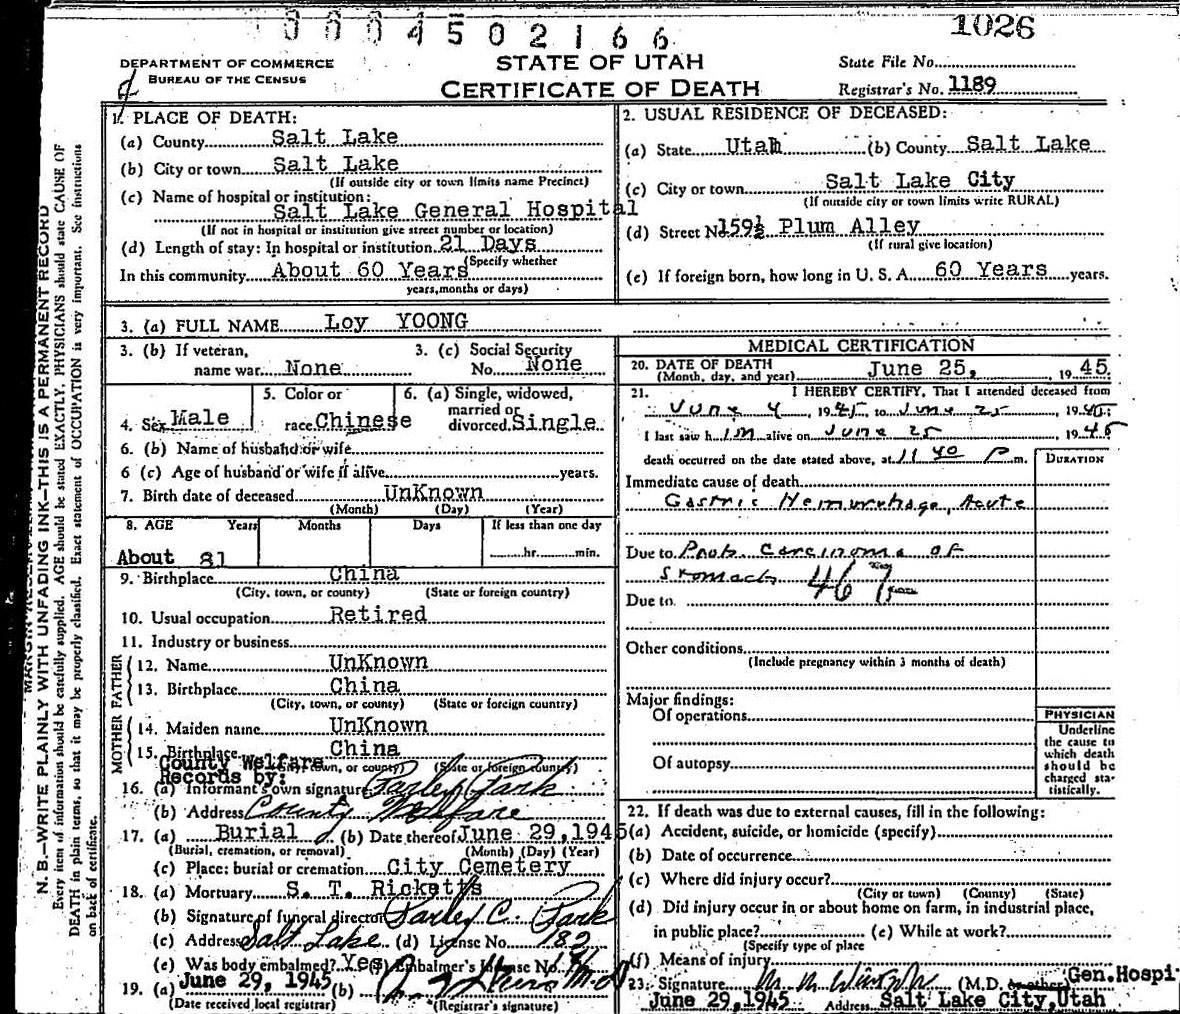 0004502166
1026
DEPARTMENT OF COMMERCE
BUREAU OF THE CENSUS
STATE OF UTAH
CERTIFICATE OF DEATH
State File No.
Registrar's No. 1189
N. B.—WRITE PLAINLY WITH UNFADING INK—THIS IS A PERMANENT RECORD
Every item of information should be carefully supplied. AGE should be stated EXACTLY. PHYSICIANS should state CAUSE OF
DEATH in plain terms, so that it may be properly classified. Exact statement of OCCUPATION is very important. See instructions
on back of certificate.
1. PLACE OF DEATH:
(a) County Salt Lake
(b) City or town Salt Lake
(If outside city or town limits name Precinct)
(c) Name of hospital or institution:
Salt Lake General Hospital
(If not in hospital or institution give street number or location)
(d) Length of stay: In hospital or institution 21 Days
(Specify whether
In this community About 60 Years
years, months or days)
2. USUAL RESIDENCE OF DECEASED:
(a) State Utah (b) County Salt Lake
(c) City or town Salt Lake City
(If outside city or town limits write RURAL)
(d) Street No 159½ Plum Alley
(If rural give location)
(e) If foreign born, how long in U. S. A. 60 Years years.
3. (a) FULL NAME Loy YOONG
3. (b) If veteran,
name war None
3. (c) Social Security
No. None
4. Sex Male
5. Color or
race Chinese
6. (a) Single, widowed,
married or
divorced Single
6. (b) Name of husband or wife
6 (c) Age of husband or wife if alive years.
7. Birth date of deceased UnKnown
(Month) (Day) (Year)
8. AGE Years Months Days If less than one day
hr. min.
About 81
9. Birthplace China
(City, town, or county) (State or foreign country)
10. Usual occupation Retired
11. Industry or business
FATHER
12. Name UnKnown
13. Birthplace China
(City, town, or county) (State or foreign country)
MOTHER
14. Maiden name UnKnown
15. Birthplace China
(City, town, or county) (State or foreign country)
County Welfare
Records by:
16. (a) Informant's own signature Parley Park
(b) Address County Welfare
17. (a) Burial (b) Date thereof June 29, 1945
(Burial, cremation, or removal) (Month) (Day) (Year)
(c) Place: burial or cremation City Cemetery
18. (a) Mortuary S. T. Ricketts
(b) Signature of funeral director Parley C. Park
(c) Address Salt Lake (d) License No. 182
(e) Was body embalmed? Yes (f) Embalmer's license No.
19. (a) June 29, 1945 (b)
(Date received local registrar) (Registrar's signature)
MEDICAL CERTIFICATION
20. DATE OF DEATH
(Month, day, and year) June 25, 1945
21. I HEREBY CERTIFY, That I attended deceased from
June 4, 1945 to June 25, 1945
I last saw h im alive on June 25 1945
death occurred on the date stated above, at 11 40 P m.
DURATION
Immediate cause of death
Gastric Hemorrhage, Acute
Due to Prob carcinoma of
Stomach 46
Due to
Other conditions
(Include pregnancy within 3 months of death)
Major findings:
Of operations
Of autopsy
PHYSICIAN
Underline
the cause to
which death
should be
charged sta-
tistically.
22. If death was due to external causes, fill in the following:
(a) Accident, suicide, or homicide (specify)
(b) Date of occurrence
(c) Where did injury occur?
(City or town) (County) (State)
(d) Did injury occur in or about home on farm, in industrial place,
in public place? (e) While at work?
(Specify type of place
(f) Means of injury
23. Signature (M.D. or other) Gen. Hospi
June 29, 1945 Address Salt Lake City, Utah